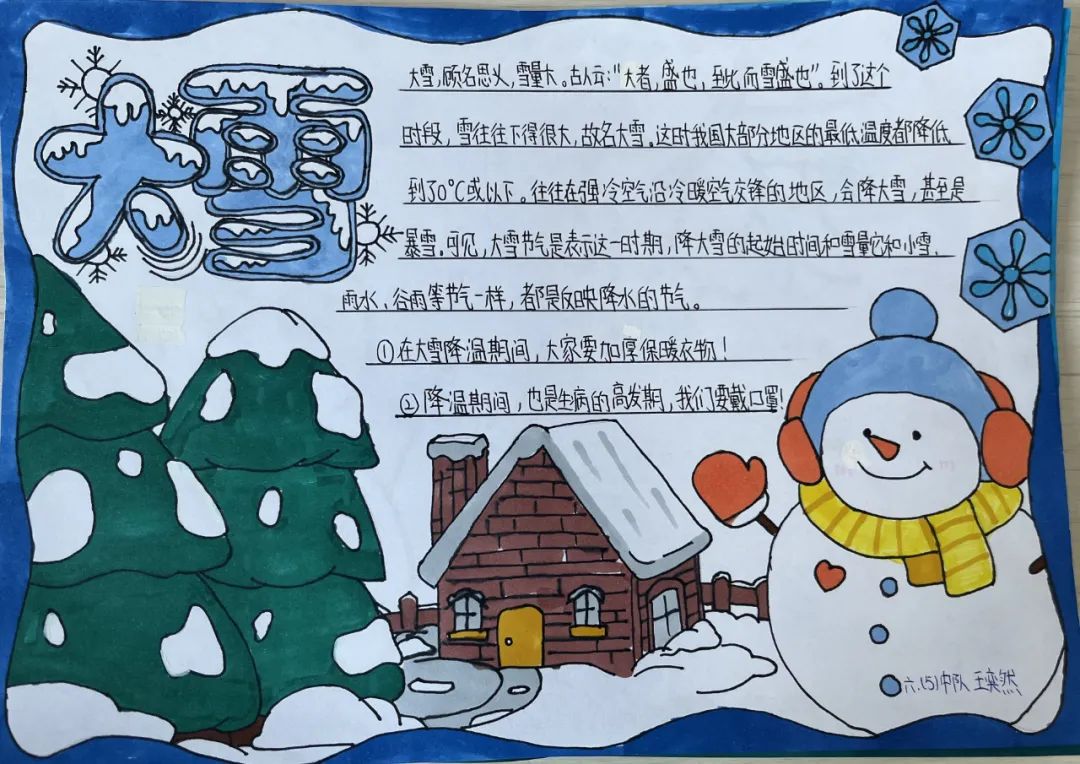 大雪
大雪,顾名思义,雪量大。古人云:"大者,盛也,至此而雪盛也"。到了这个
时段,雪往往下得很大,故名大雪。这时我国大部分地区的最低温度都降低
到了0℃或以下。往往在强冷空气沿冷暖空气交锋的地区,会降大雪,甚至是
暴雪。可见,大雪节气是表示这一时期,降大雪的起始时间和雪量它和小雪、
雨水、谷雨等节气一样,都是反映降水的节气。
①在大雪降温期间,大家要加厚保暖衣物!
②降温期间,也是生病的高发期,我们要戴口罩!
六.(5)中队 王奕然